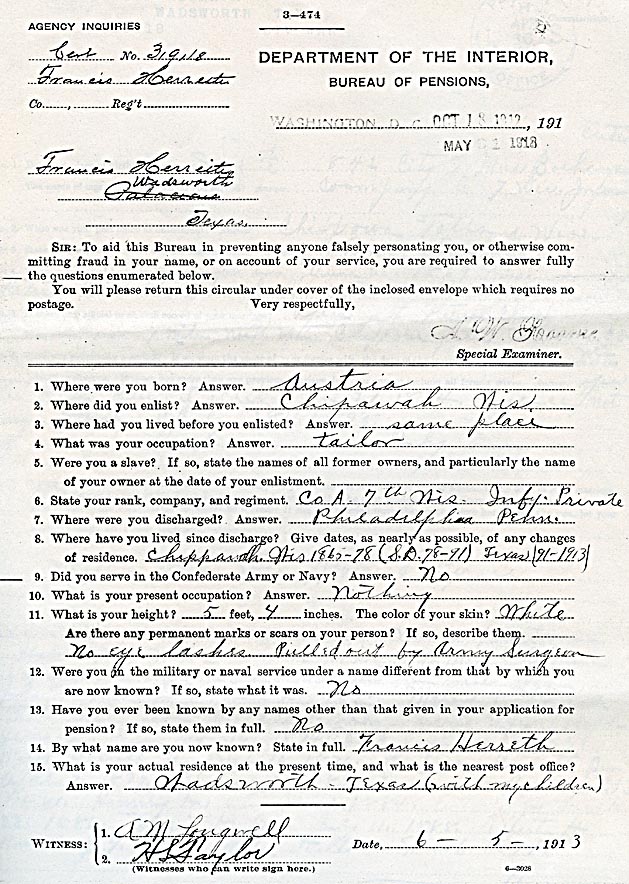 3—474
AGENCY INQUIRIES
Cert No. 31918
Francis Herreth
Co. , Reg't
DEPARTMENT OF THE INTERIOR,
BUREAU OF PENSIONS,
WASHINGTON D C OCT 18 1912, 191
MAY 1913
Francis Herreth
Wadsworth
Palacious
Texas
SIR: To aid this Bureau in preventing anyone falsely personating you, or otherwise com-
mitting fraud in your name, or on account of your service, you are required to answer fully
the questions enumerated below.
You will please return this circular under cover of the inclosed envelope which requires no
postage. Very respectfully,
Special Examiner.
1. Where were you born? Answer. Austria
2. Where did you enlist? Answer. Chipawah Wis.
3. Where had you lived before you enlisted? Answer. same place
4. What was your occupation? Answer. tailor
5. Were you a slave? If so, state the names of all former owners, and particularly the name
of your owner at the date of your enlistment.
6. State your rank, company, and regiment. Co A. 7th Wis. Infy. Private
7. Where were you discharged? Answer. Philadelphia Penn.
8. Where have you lived since discharge? Give dates, as nearly as possible, of any changes
of residence. Chippawah Wis 1865-78 (S.D. 78-91) Texas (91-1913)
9. Did you serve in the Confederate Army or Navy? Answer. No
10. What is your present occupation? Answer. Nothing
11. What is your height? 5 feet, 4 inches. The color of your skin? White
Are there any permanent marks or scars on your person? If so, describe them.
No eye lashes Pulled out by Army Surgeon
12. Were you in the military or naval service under a name different from that by which you
are now known? If so, state what it was. No
13. Have you ever been known by any names other than that given in your application for
pension? If so, state them in full. No
14. By what name are you now known? State in full. Francis Herreth
15. What is your actual residence at the present time, and what is the nearest post office?
Answer. Wadsworth - Texas (with my children)
WITNESS: 1. A M Longwell
2. H S Taylor
(Witnesses who can write sign here.)
Date, 6 — 5 —, 1913
6—3028